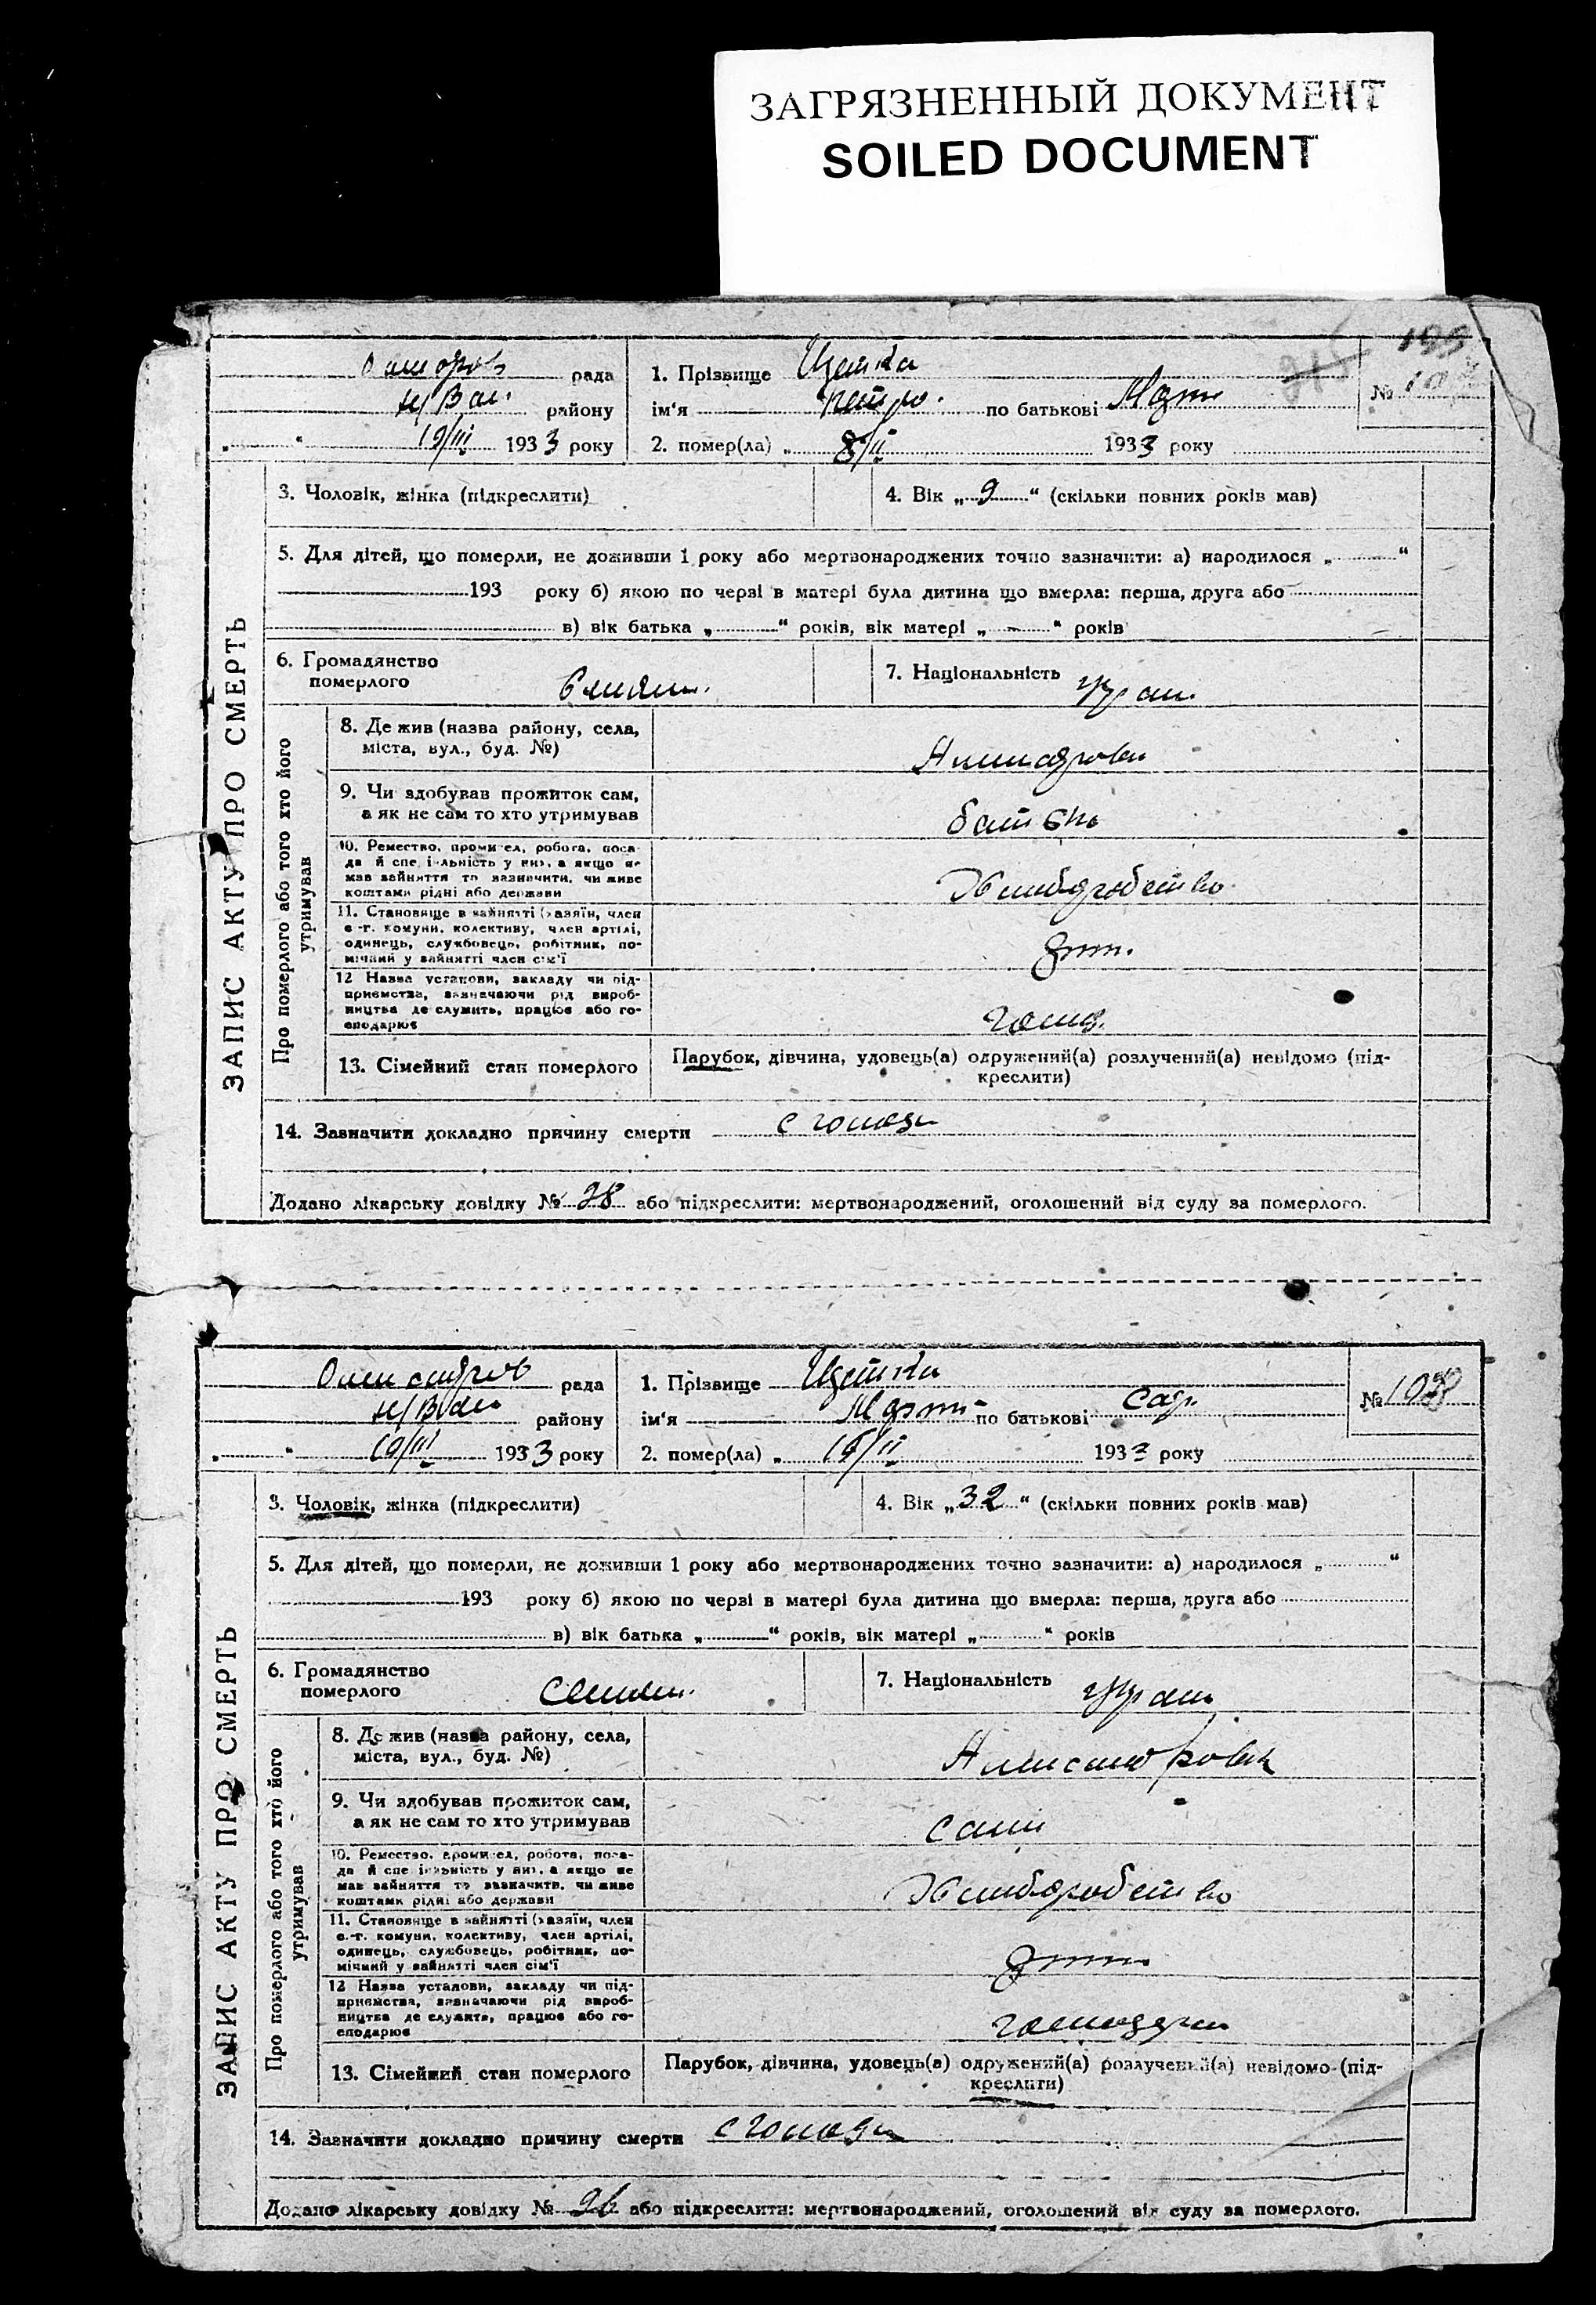 ЗАГРЯЗНЕННЫЙ ДОКУМЕНТ
SOILED DOCUMENT
195
рада 1. Прізвище Щетка № 107
н/Вас. району ім'я Петро. по батькові Март
„ “ 19/III 1933 року 2. помер(ла) „ 8/II 1933 року
ЗАПИС АКТУ ПРО СМЕРТЬ
3. Чоловік, жінка (підкреслити) 4. Вік „ 9 “ (скільки повних років мав)
5. Для дітей, що померли, не доживши 1 року або мертвонароджених точно зазначити: а) народилося „ “
193 року б) якою по черзі в матері була дитина що вмерла: перша, друга або
в) вік батька „ “ років, вік матері „ “ років
6. Громадянство 7. Національність укр
померлого
Про померлого або того хто його утримував
8. Де жив (назва району, села,
міста, вул., буд. №)
9. Чи здобував прожиток сам,
а як не сам то хто утримував
батько
10. Ремество, промисел, робота, поса-
да й спеціяльність у них, а якщо не
мав зайняття то зазначити, чи живе
коштами рідні або держави
Хлиборобство
11. Становище в зайнятті (хазяїн, член
с.-г. комуни, колективу, член артілі,
одинець, службовець, робітник, по-
мічний у зайнятті член сім'ї
12 Назва установи, закладу чи під-
приємства, зазначаючи рід вироб-
ництва де служить, працює або го-
сподарює
13. Сімейний стан померлого Парубок, дівчина, удовець(а) одружений(а) розлучений(а) невідомо (під-
креслити)
14. Зазначити докладно причину смерти с голода
Додано лікарську довідку № 28 або підкреслити: мертвонароджений, оголошений від суду за померлого.
Олександров рада 1. Прізвище Щетка № 108
н/Вас району ім'я Март по батькові
„ “ 19/III 1933 року 2. помер(ла) „ 1933 року
ЗАПИС АКТУ ПРО СМЕРТЬ
3. Чоловік, жінка (підкреслити) 4. Вік „ 32 “ (скільки повних років мав)
5. Для дітей, що померли, не доживши 1 року або мертвонароджених точно зазначити: а) народилося „ “
193 року б) якою по черзі в матері була дитина що вмерла: перша, друга або
в) вік батька „ “ років, вік матері „ “ років
6. Громадянство 7. Національність
померлого
Про померлого або того хто його утримував
8. Де жив (назва району, села,
міста, вул., буд. №)
9. Чи здобував прожиток сам,
а як не сам то хто утримував
сам
10. Ремество, промисел, робота, поса-
да й спеціяльність у них, а якщо не
мав зайняття то зазначити, чи живе
коштами рідні або держави
Хлиборобство
11. Становище в зайнятті (хазяїн, член
с.-г. комуни, колективу, член артілі,
одинець, службовець, робітник, по-
мічний у зайнятті член сім'ї
12 Назва установи, закладу чи під-
приємства, зазначаючи рід вироб-
ництва де служить, працює або го-
сподарює
13. Сімейний стан померлого Парубок, дівчина, удовець(а) одружений(а) розлучений(а) невідомо (під-
креслити)
14. Зазначити докладно причину смерти с голода
Додано лікарську довідку № 26 або підкреслити: мертвонароджений, оголошений від суду за померлого.